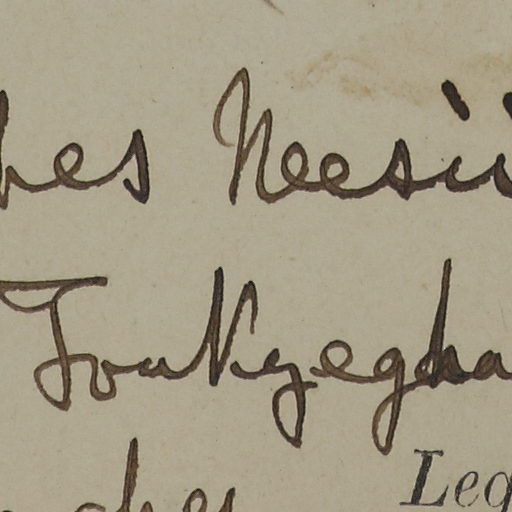 hes Neesii
Toukyegha
ches
Leg